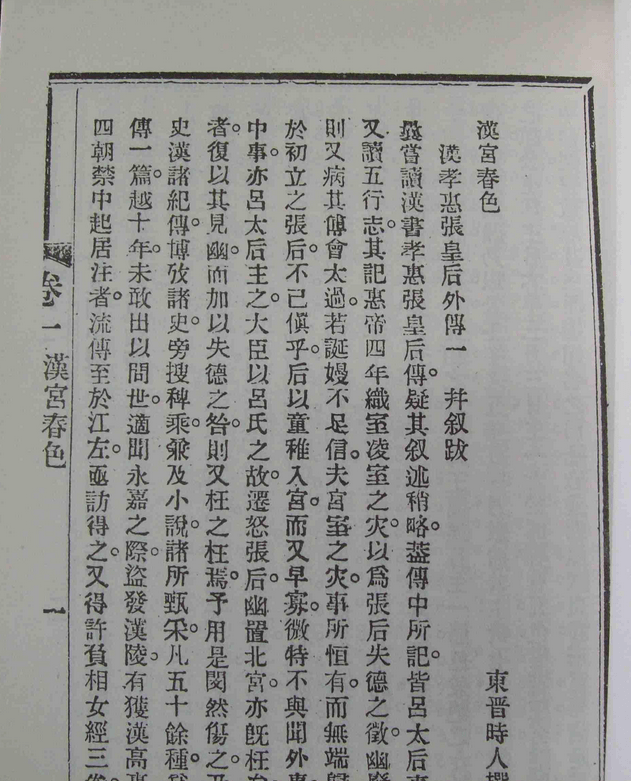 漢宮春色
東晉時人撰
漢孝惠張皇后外傳一 幷叙跋
曩嘗讀漢書孝惠張皇后傳。疑其叙述稍略。葢傳中所記。皆呂太后事
又讀五行志。其記惠帝四年織室凌室之灾。以爲張后失德之徵。幽廢
則又病其傅會太過。若誕嫚不足信。夫宮室之灾。事所恒有。而無端歸
於初立之張后。不已傎乎。后以童稚入宮。而又早寡。微特不與聞外事
中事。亦呂太后主之。大臣以呂氏之故。遷怒張后。幽置北宮。亦旣枉
者。復以其見幽。而加以失德之咎。則又枉之枉焉。予用是閔然傷之。
史漢諸紀傳。博攷諸史。旁搜稗乘。兼及小說諸所甄采。凡五十餘種。
傳一篇。越十年。未敢出以問世。適聞永嘉之際。盜發漢陵。有獲漢高惠
四朝禁中起居注者。流傳至於江左。亟訪得之。又得許負相女經三
卷一 漢宮春色
一